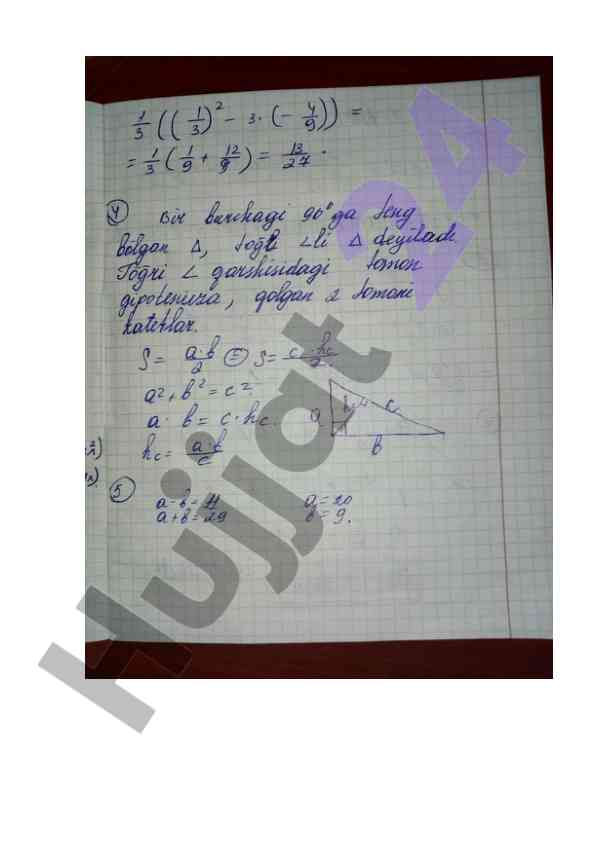 1/3 ((1/3)² - 3·(-4/9)) =
= 1/3 (1/9 + 12/9) = 13/27.
4 Bir burchagi 90° ga teng
bolgan Δ, toğli ∠li Δ deyiladi.
Toğri ∠ qarshisidagi tomon
gipotenuza, qolgan 2 tomoni
katetlar.
S = a·b/2 = S = c·hc/2.
a² + b² = c².
a · b = c · hc.
hc = a·b/c
a h c
b
5
a-b = 11 a = 20
a+b = 29 b = 9.
Hujjat 24